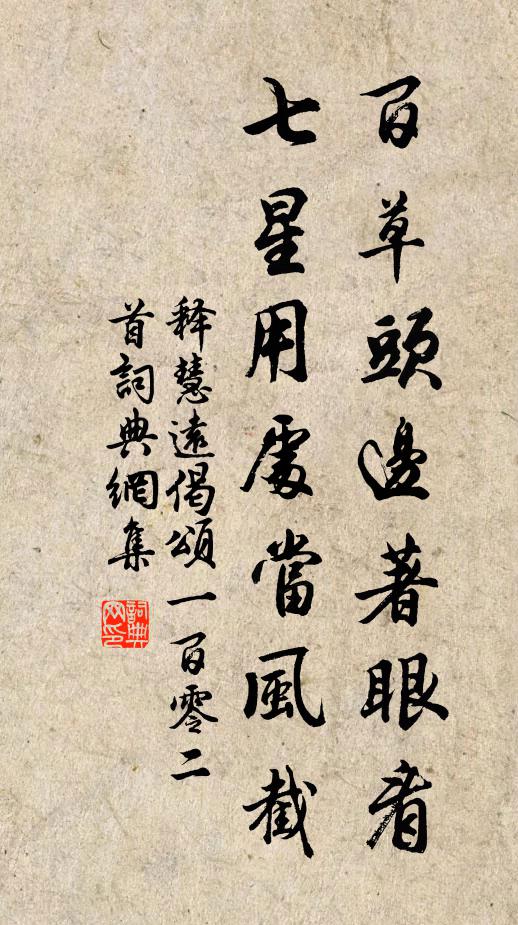 百草頭邊著眼看
七星用處當風截
释慧遠偈頌一百零二
首詞典網集
詞典
网印